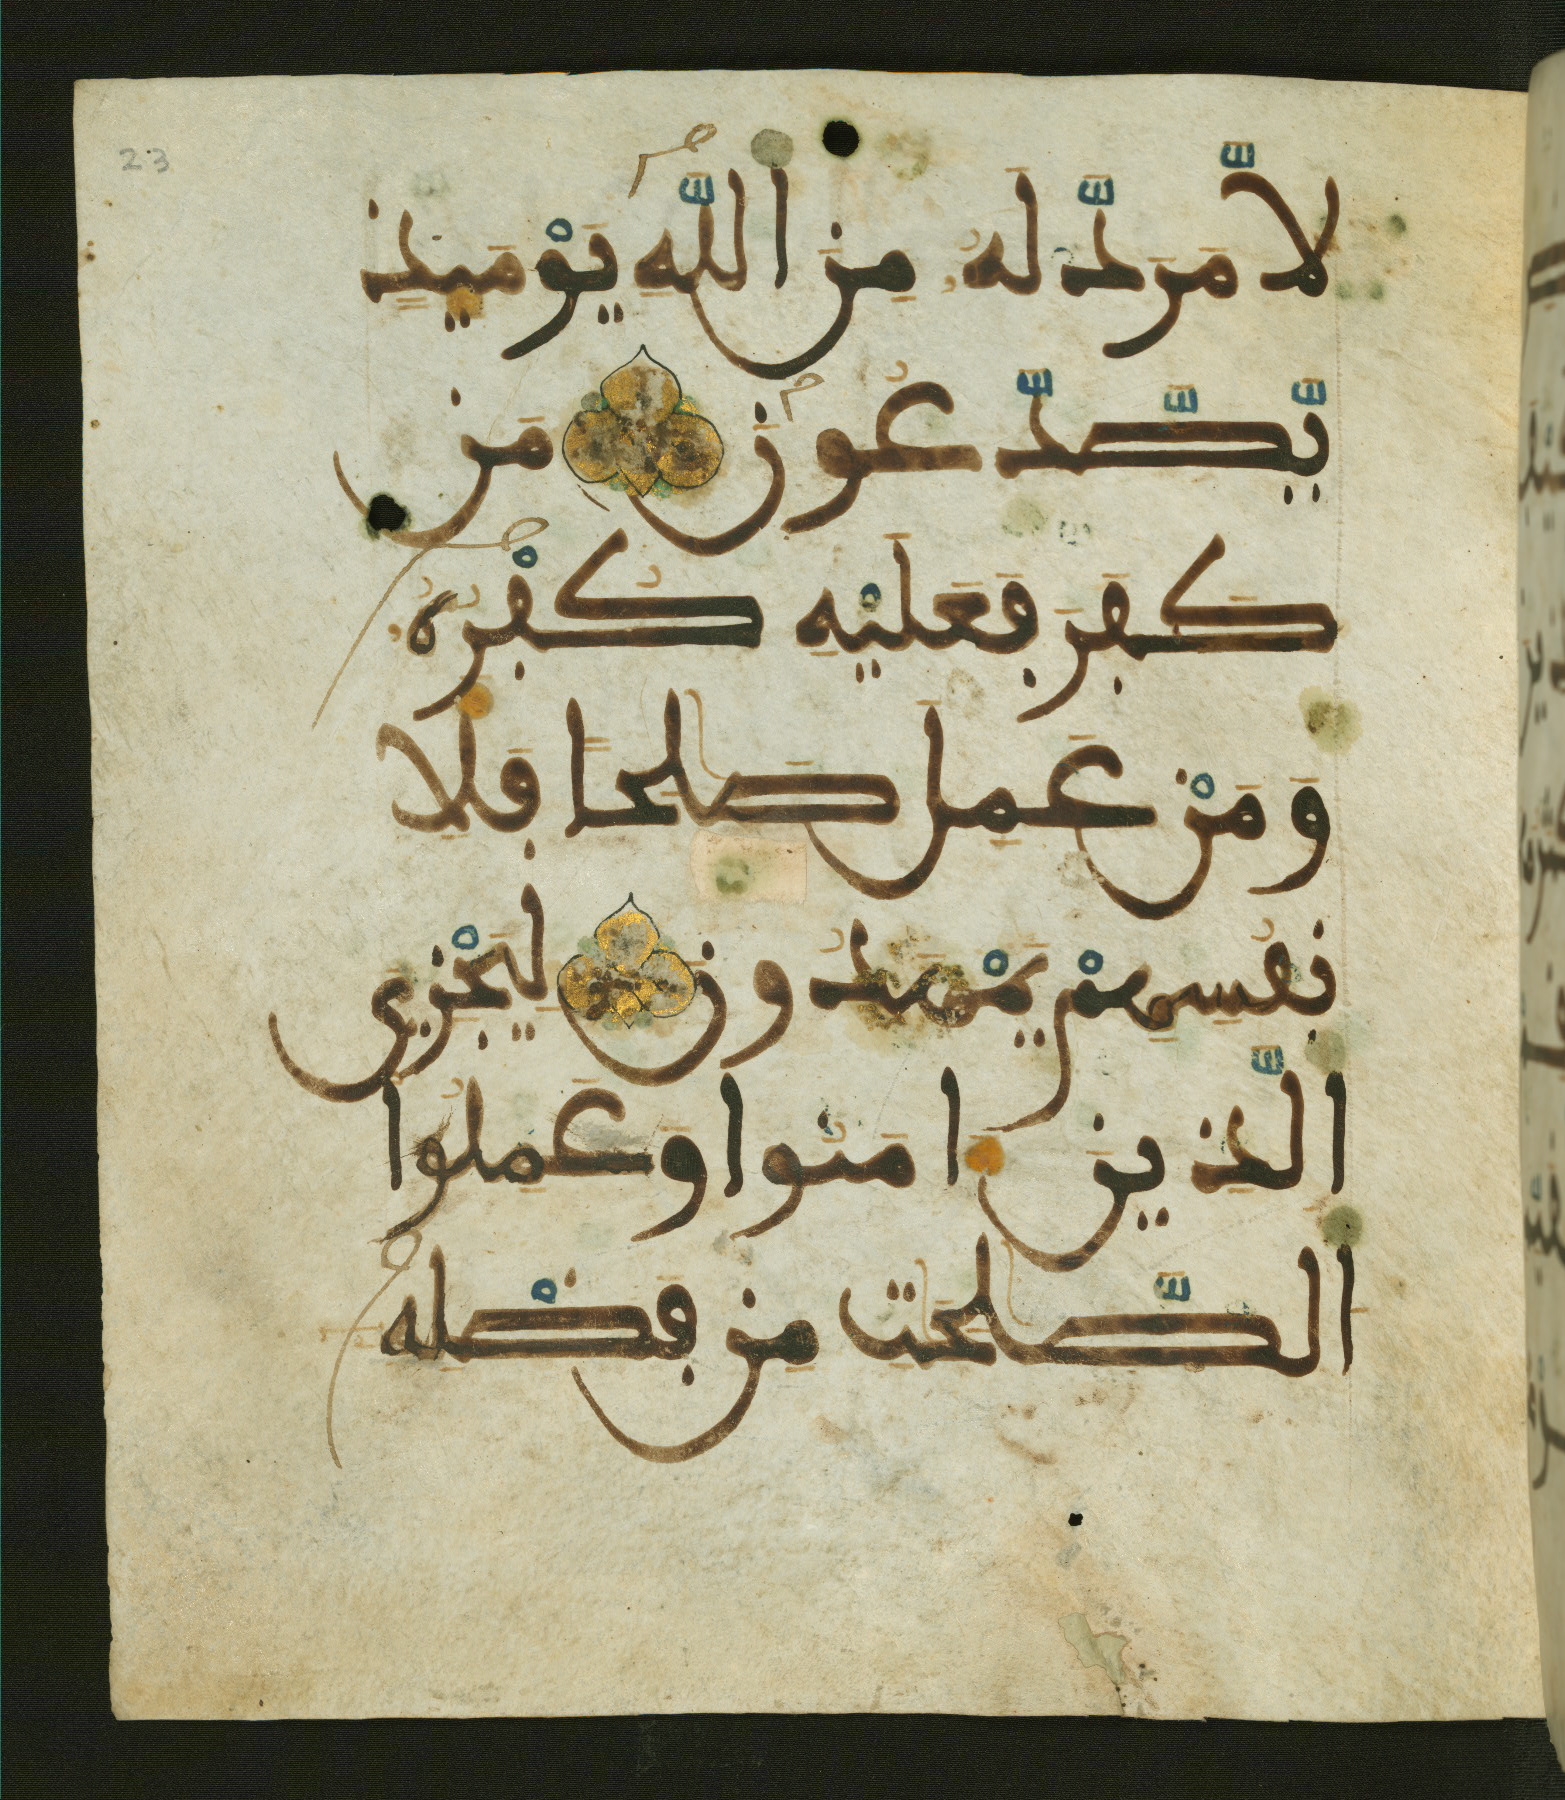 23
لَّا مَرَدَّ لَهُۥ مِنَ ٱللَّهِ يَوْمَئِذٍ
يَّصَّدَّعُونَ مَن
كَفَرَ فَعَلَيْهِ كُفْرُهُۥ
وَمَنْ عَمِلَ صَٰلِحًا فَلِأَ
نفُسِهِمْ يَمْهَدُونَ لِيَجْزِيَ
ٱلَّذِينَ ءَامَنُوا وَعَمِلُوا
ٱلصَّٰلِحَٰتِ مِن فَضْلِهِ